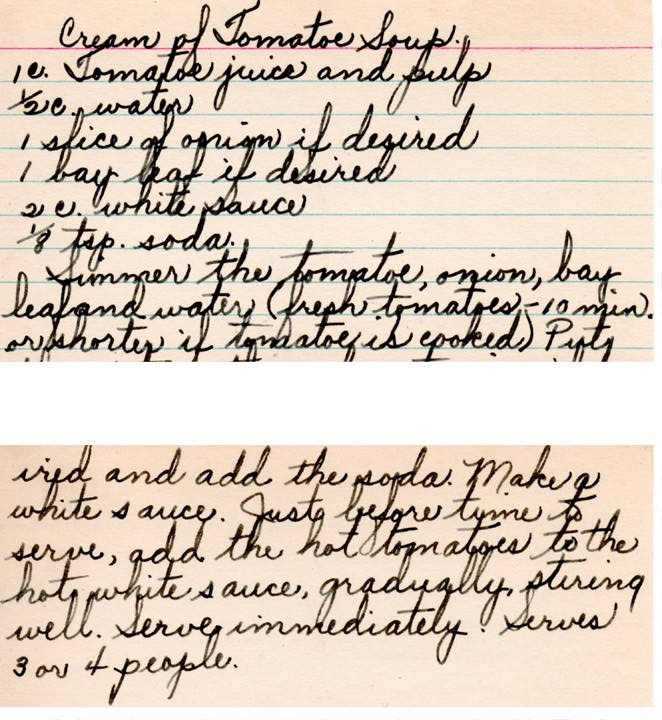 Cream of Tomatoe Soup.
1 c. Tomatoe juice and pulp
1/2 c. water
1 slice of onion if desired
1 bay leaf if desired
2 c. white sauce
1/8 tsp. soda.
Simmer the tomatoe, onion, bay
leaf and water (fresh tomatoes - 10 min.
or shorter if tomatoe is cooked) Put
ired and add the soda. Make a
white sauce. Just before time to
serve, add the hot tomatoes to the
hot white sauce, gradually, stiring
well. Serve immediately. Serves
3 or 4 people.